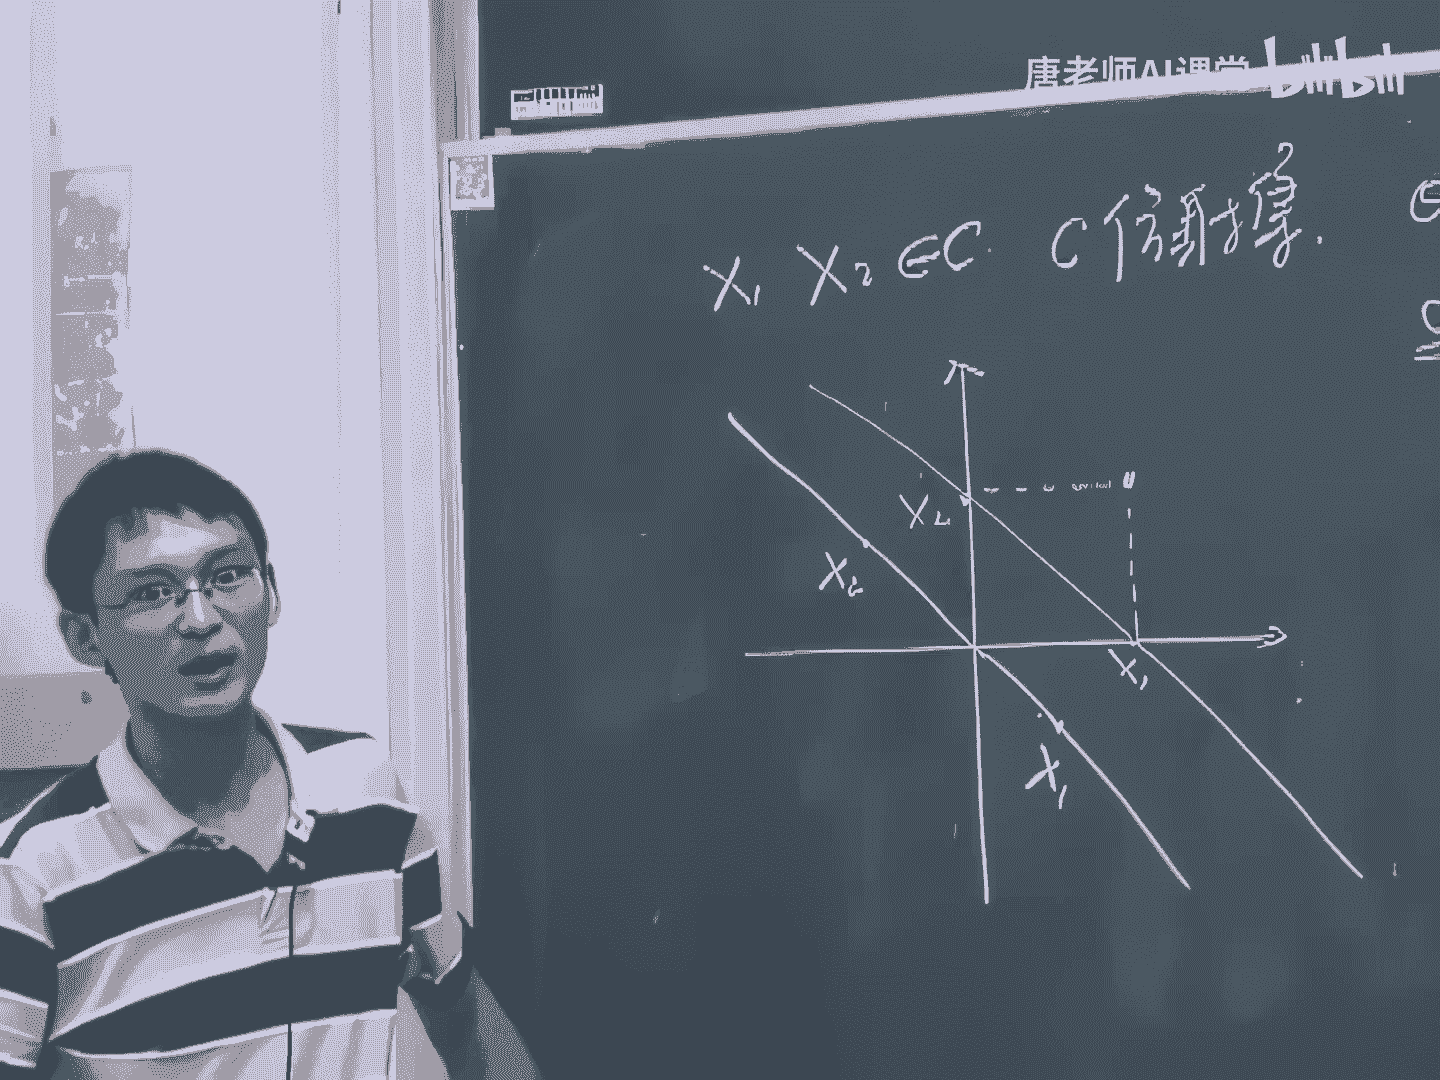 唐老师AI课堂 bilibili
X₁ X₂ ∈ C. C 仿射集.
X₂
X₂
X₁
X₁